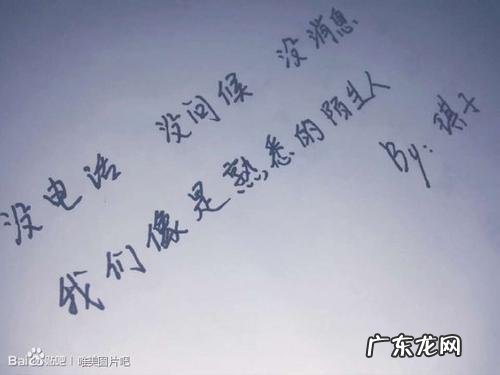 没电话 没问候 没消息
我们像是熟悉的陌生人
By: 琪子
Bai贴吧 | 唯美图片吧
广东龙网